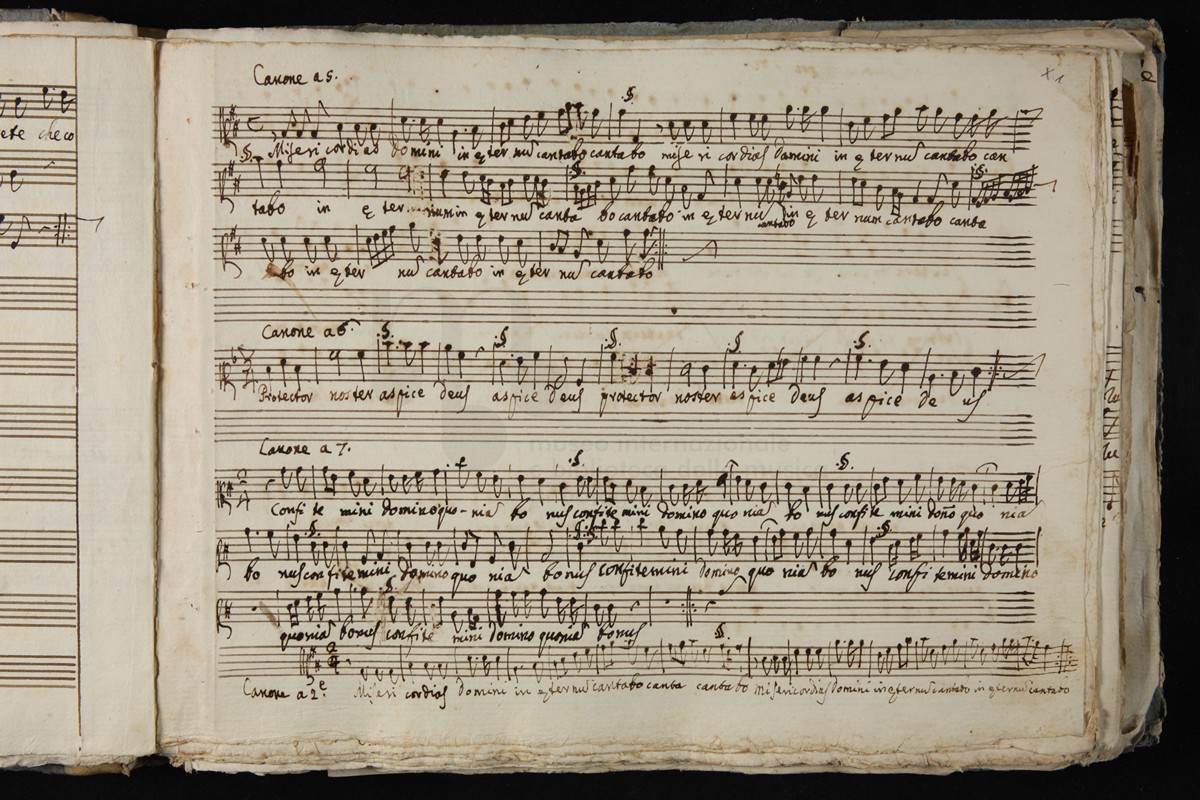 ete che co
Canone a 5.
X 1
Misericordias domini in ęternũ cantabo cantabo misericordias domini in ęternũ cantabo can
tabo in ęter num in ęternũ canta bo cantabo in ęternũ cantabo in ęternum cantabo canta
bo in ęter nũ cantabo in ęternũ cantabo
Canone a 6
Protector noster aspice deus aspice deus protector noster aspice deus aspice de us
museo internazionale
Canone a 7.
Confite mini domino quo-niã bo nus confite mini domino quoniã bo nus confite mini doño quo niã
bo nus confitemini domino quo niã bonus confitemini domino quo niã bo nus confitemini domino
quoniã bonus confite mini domino quoniã bonus
Canone a 2.e Misericordias Domini in ęternũ cantabo canta cantabo Misericordias Domini in ęternũ cantabo in ęternũ cantabo